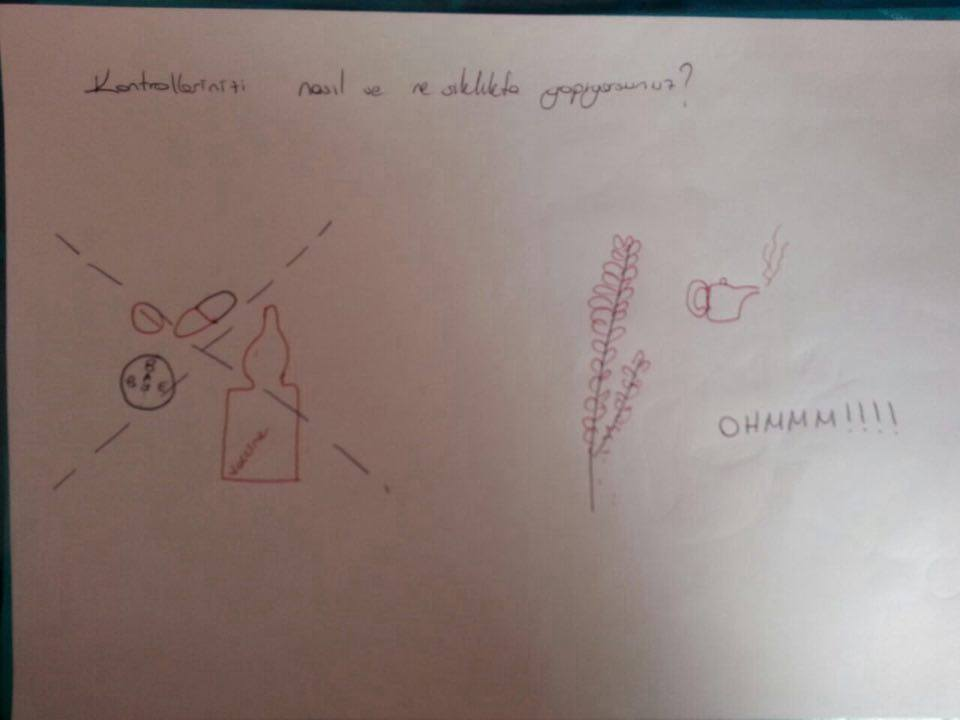 Kontrollerinizi nasıl ve ne sıklıkta yapıyorsunuz?
vaccine
OHMMM!!!!